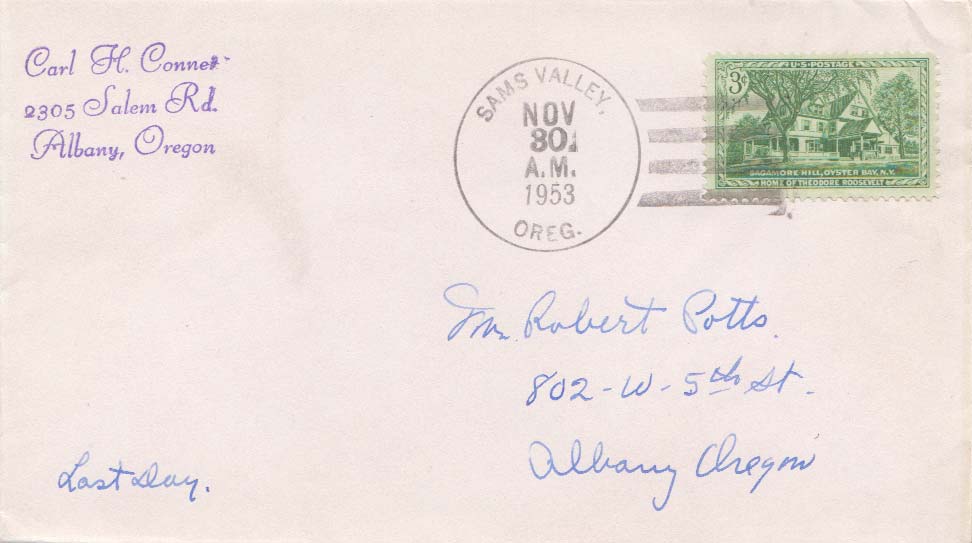 Carl H. Conner
2305 Salem Rd.
Albany, Oregon
SAMS VALLEY,
NOV
30
A.M.
1953
OREG.
U.S. POSTAGE
3¢
SAGAMORE HILL, OYSTER BAY, N.Y.
HOME OF THEODORE ROOSEVELT
Mr. Robert Potts.
802-W-5th St.
Albany Oregon
Last Day.